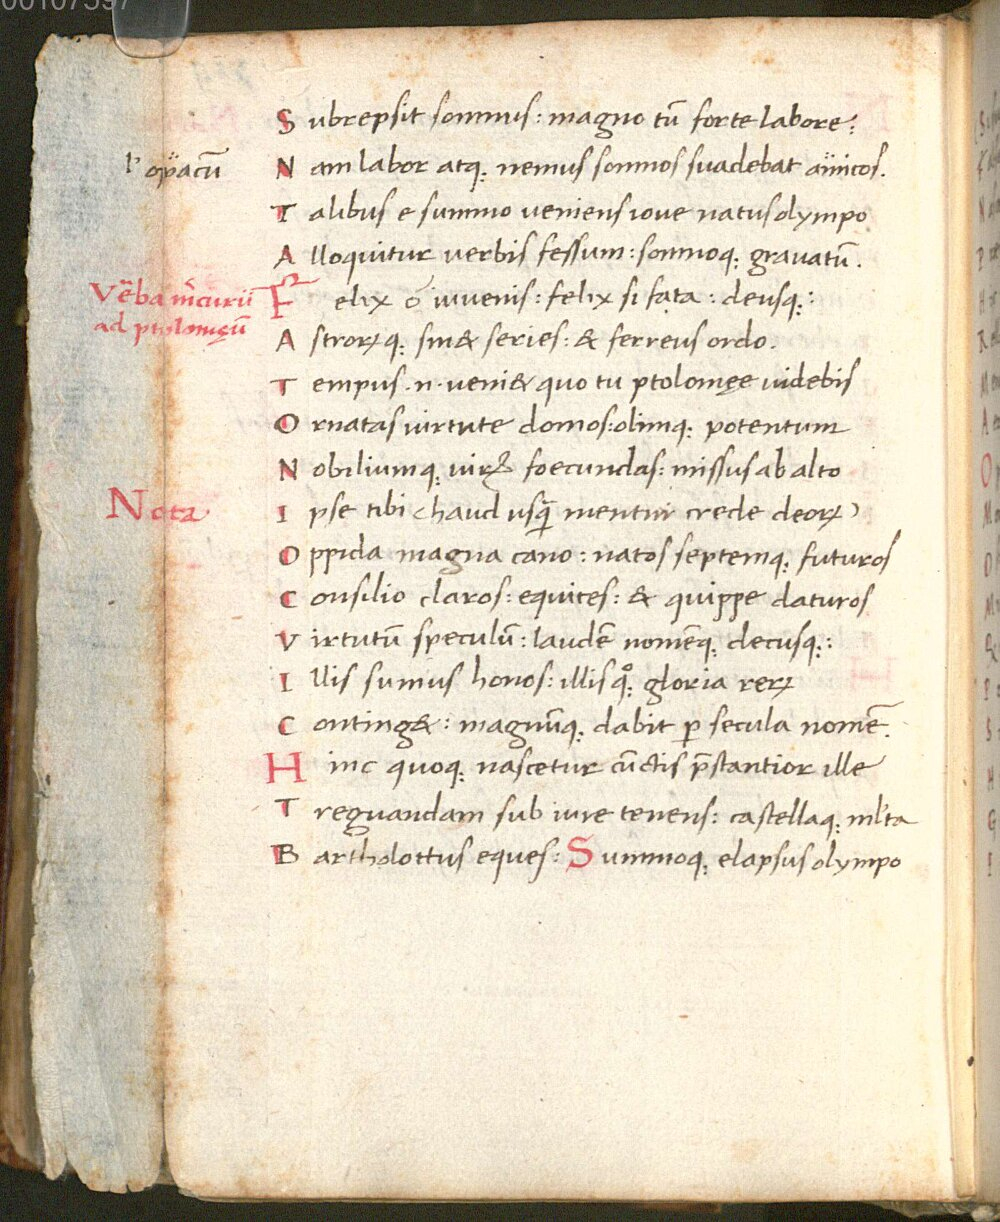 00107597
Subrepsit somnus: magno tū forte labore:
l' opacū
Nam labor atq; nemus somnos suadebat amicos.
Talibus e summo veniens iove natus olympo
Alloquitur verbis fessum: somnoq; gravatū.
Vēba m̄curii
ad ptolomęū
Felix ō iuvenis: felix si fata: deusq;:
Astrorꝝq; sin& series: & ferreus ordo.
Tempus .n. veni& quo tu ptolomęe videbis
Ornatas virtute domos: olimq; potentum
Nobiliumq; virꝝ foecundas: missus ab alto
Nota
Ipse tibi (haud usq̄ mentiri crede deorꝝ)
Oppida magna cano: natos septemq; futuros
Consilio claros: equites: & quippe daturos
Virtutū speculū: laudē nomēq; decusq;:
Illis sumus honos: illis qͦ; gloria rerꝝ
Conting&: magnūq; dabit ꝑ secula nomē.
Hinc quoq; nascetur cūctis p̄stantior ille
Treguandam sub iure tenens: castellaq; ml'ta
Bartholottus eques: Summoq; elapsus olympo